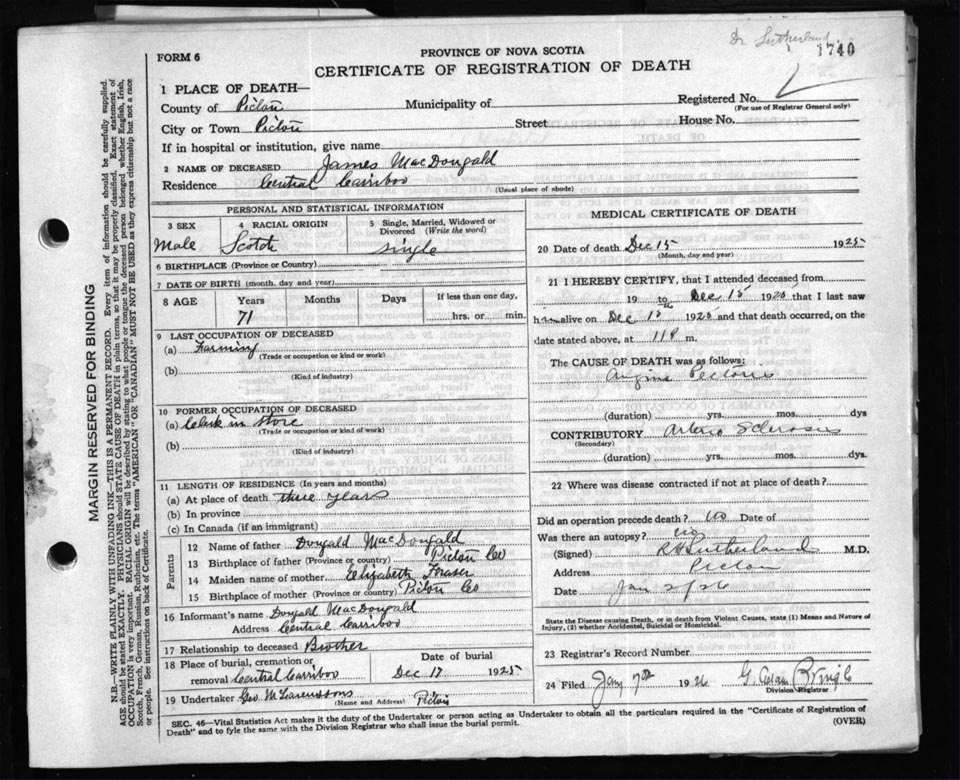 Dr Sutherland
1740
FORM 6
PROVINCE OF NOVA SCOTIA
CERTIFICATE OF REGISTRATION OF DEATH
1 PLACE OF DEATH—
County of Pictou Municipality of Registered No.
(For use of Registrar General only)
City or Town Pictou Street House No.
If in hospital or institution, give name
2 NAME OF DECEASED James MacDougald
Residence Central Carriboo
(Usual place of abode)
PERSONAL AND STATISTICAL INFORMATION
3 SEX 4 RACIAL ORIGIN 5 Single, Married, Widowed or Divorced (Write the word)
Male Scotch single
6 BIRTHPLACE (Province or Country)
7 DATE OF BIRTH (month, day and year)
8 AGE Years Months Days If less than one day,
71 hrs. or min.
9 LAST OCCUPATION OF DECEASED
(a) Farming
(Trade or occupation or kind or work)
(b)
(Kind of industry)
10 FORMER OCCUPATION OF DECEASED
(a) Clerk in Store
(Trade or occupation or kind or work)
(b)
(Kind of industry)
11 LENGTH OF RESIDENCE (In years and months)
(a) At place of death three years
(b) In province
(c) In Canada (if an immigrant)
Parents
12 Name of father Dougald MacDougald
13 Birthplace of father (Province or country) Pictou Co
14 Maiden name of mother Elizabeth Fraser
15 Birthplace of mother (Province or country) Pictou Co
16 Informant's name Dougald MacDougald
Address Central Carriboo
17 Relationship to deceased Brother
18 Place of burial, cremation or removal Central Cariboo Date of burial Dec 17 1925
19 Undertaker Geo. M Pictou
(Name and Address)
MEDICAL CERTIFICATE OF DEATH
20 Date of death Dec 15 1925
(Month, day and year)
21 I HEREBY CERTIFY, that I attended deceased from
19 to Dec 15 1925 that I last saw
him alive on Dec 15 1925 and that death occurred, on the
date stated above, at 11 P m.
The CAUSE OF DEATH was as follows:
Angina Pectoris
(duration) yrs. mos. dys
CONTRIBUTORY Arterio Sclerosis
(Secondary)
(duration) yrs. mos. dys.
22 Where was disease contracted if not at place of death?
Did an operation precede death? no Date of
Was there an autopsy? no
(Signed) R H Sutherland M.D.
Address Pictou
Date Jan 2/26
State the Disease causing Death, or in death from Violent Causes, state (1) Means and Nature of Injury, (2) whether Accidental, Suicidal or Homicidal.
23 Registrar's Record Number
24 Filed Jany 7th 1926 G.
Division Registrar
SEC. 46—Vital Statistics Act makes it the duty of the Undertaker or person acting as Undertaker to obtain all the particulars required in the "Certificate of Registration of
Death" and to fyle the same with the Division Registrar who shall issue the burial permit. (OVER)
MARGIN RESERVED FOR BINDING
N.B.—WRITE PLAINLY WITH UNFADING INK—THIS IS A PERMANENT RECORD. Every item of information should be carefully supplied.
AGE should be stated EXACTLY. PHYSICIANS should STATE CAUSE OF DEATH in plain terms, so that it may be properly classified. Exact statement of
OCCUPATION is very important. RACIAL ORIGIN will be described by stating to what people or tongue the deceased person belonged whether English, Irish,
Scotch, French, German, Russian, Ruthenian, etc. The terms "AMERICAN" OR "CANADIAN" MUST NOT BE USED as they express citizenship but not a race
or people. See instructions on back of Certificate.